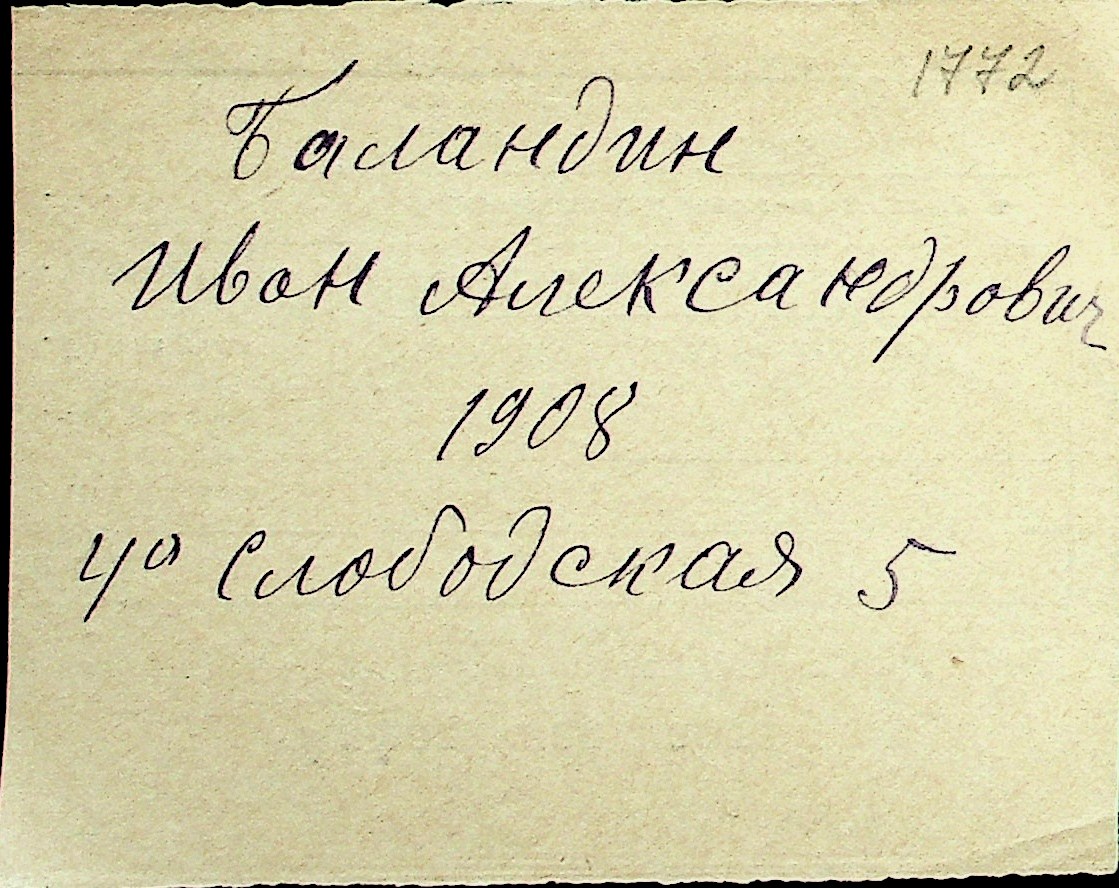 1772
Баландин
Иван Александрович
1908
4а Слободская 5